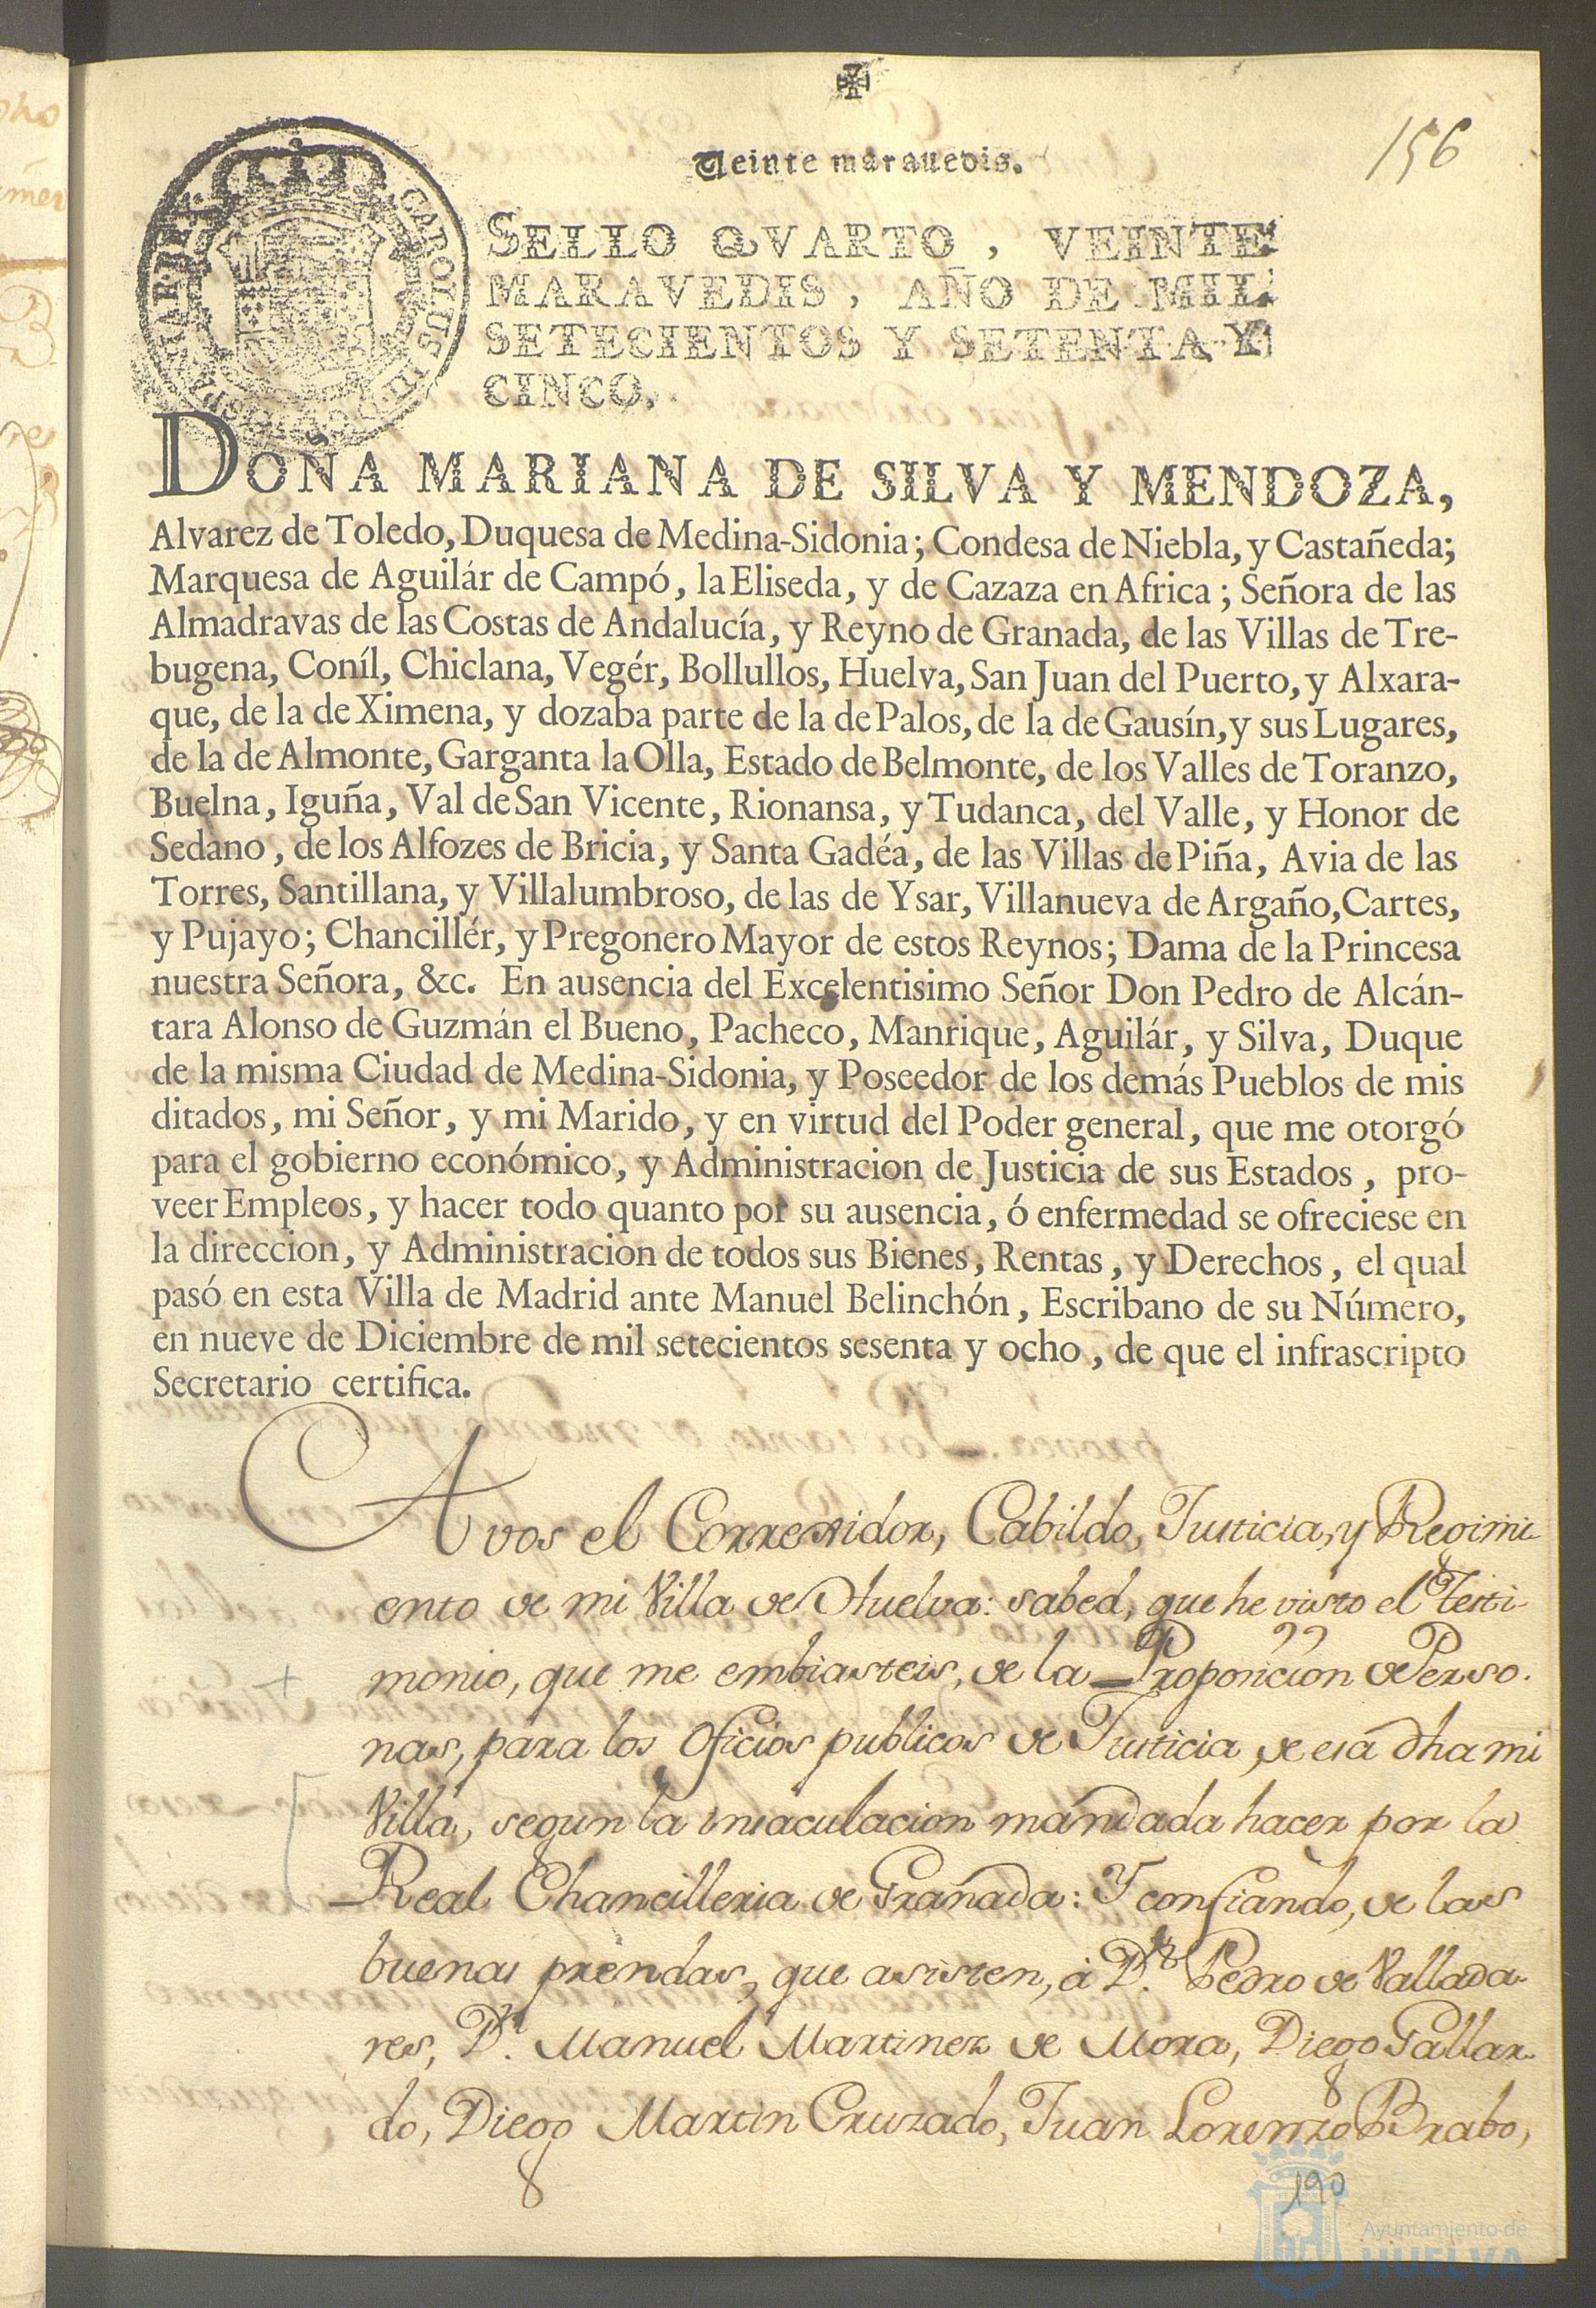 156
Veinte marauedis.
SELLO QVARTO, VEINTE
MARAVEDIS, AÑO DE MIL
SETECIENTOS Y SETENTA Y
CINCO.
CAROLUS III
DOÑA MARIANA DE SILVA Y MENDOZA,
Alvarez de Toledo, Duquesa de Medina-Sidonia; Condesa de Niebla, y Castañeda;
Marquesa de Aguilár de Campó, la Eliseda, y de Cazaza en Africa; Señora de las
Almadravas de las Costas de Andalucía, y Reyno de Granada, de las Villas de Tre-
bugena, Coníl, Chiclana, Vegér, Bollullos, Huelva, San Juan del Puerto, y Alxara-
que, de la de Ximena, y dozaba parte de la de Palos, de la de Gausín, y sus Lugares,
de la de Almonte, Garganta la Olla, Estado de Belmonte, de los Valles de Toranzo,
Buelna, Iguña, Val de San Vicente, Rionansa, y Tudanca, del Valle, y Honor de
Sedano, de los Alfozes de Bricia, y Santa Gadéa, de las Villas de Piña, Avia de las
Torres, Santillana, y Villalumbroso, de las de Ysar, Villanueva de Argaño, Cartes,
y Pujayo; Chancillér, y Pregonero Mayor de estos Reynos; Dama de la Princesa
nuestra Señora, &c. En ausencia del Excelentisimo Señor Don Pedro de Alcán-
tara Alonso de Guzmán el Bueno, Pacheco, Manrique, Aguilár, y Silva, Duque
de la misma Ciudad de Medina-Sidonia, y Poseedor de los demás Pueblos de mis
ditados, mi Señor, y mi Marido, y en virtud del Poder general, que me otorgó
para el gobierno económico, y Administracion de Justicia de sus Estados, pro-
veer Empleos, y hacer todo quanto por su ausencia, ó enfermedad se ofreciese en
la direccion, y Administracion de todos sus Bienes, Rentas, y Derechos, el qual
pasó en esta Villa de Madrid ante Manuel Belinchón, Escribano de su Número,
en nueve de Diciembre de mil setecientos sesenta y ocho, de que el infrascripto
Secretario certifica.
A vos el Corregidor, Cabildo, Justicia, y Regimi-
ento de mi Villa de Huelva: sabed, que he visto el Testi-
monio, que me embiasteis, de la Proposicion de Perso-
nas, para los Oficios publicos de Justicia, de esa dha mi
Villa, segun la insaculacion mandada hacer por la
Real Chancilleria de Granada: Y confiando, de las
buenas prendas, que asisten, á Dn. Pedro de Vallada-
res, Dn. Manuel Martinez de Mora, Diego Gallar-
do, Diego Martin Cruzado, Juan Lorenzo Brabo,
190
Ayuntamiento de
HUELVA